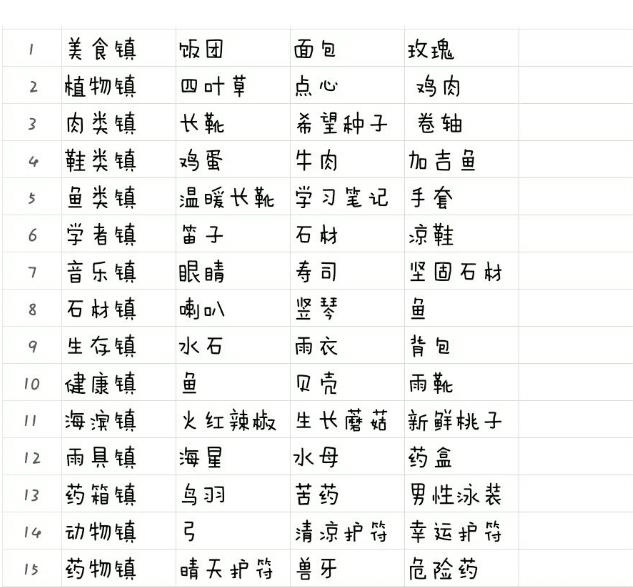 1 美食镇 饭团 面包 玫瑰
2 植物镇 四叶草 点心 鸡肉
3 肉类镇 长靴 希望种子 卷轴
4 鞋类镇 鸡蛋 牛肉 加吉鱼
5 鱼类镇 温暖长靴 学习笔记 手套
6 学者镇 笛子 石材 凉鞋
7 音乐镇 眼睛 寿司 坚固石材
8 石材镇 喇叭 竖琴 鱼
9 生存镇 水石 雨衣 背包
10 健康镇 鱼 贝壳 雨靴
11 海滨镇 火红辣椒 生长蘑菇 新鲜桃子
12 雨具镇 海星 水母 药盒
13 药箱镇 鸟羽 苦药 男性泳装
14 动物镇 弓 清凉护符 幸运护符
15 药物镇 晴天护符 兽牙 危险药